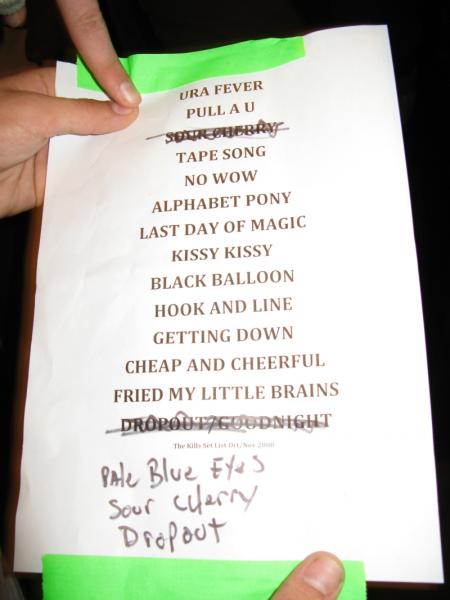 URA FEVER
PULL A U
SOUR CHERRY
TAPE SONG
NO WOW
ALPHABET PONY
LAST DAY OF MAGIC
KISSY KISSY
BLACK BALLOON
HOOK AND LINE
GETTING DOWN
CHEAP AND CHEERFUL
FRIED MY LITTLE BRAINS
DROPOUT/GOODNIGHT
The Kills Set List Oct/Nov 2008
Pale Blue Eyes
Sour Cherry
Dropout